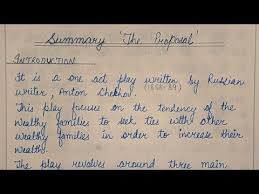 Summary 'The Proposal'
INTRODUCTION
It is a one act play written by Russian
writer, Anton Chekhov.
This play focuses on the tendency of the
wealthy families to seek ties with other
wealthy families in order to increase their
wealth.
The play revolves around three main